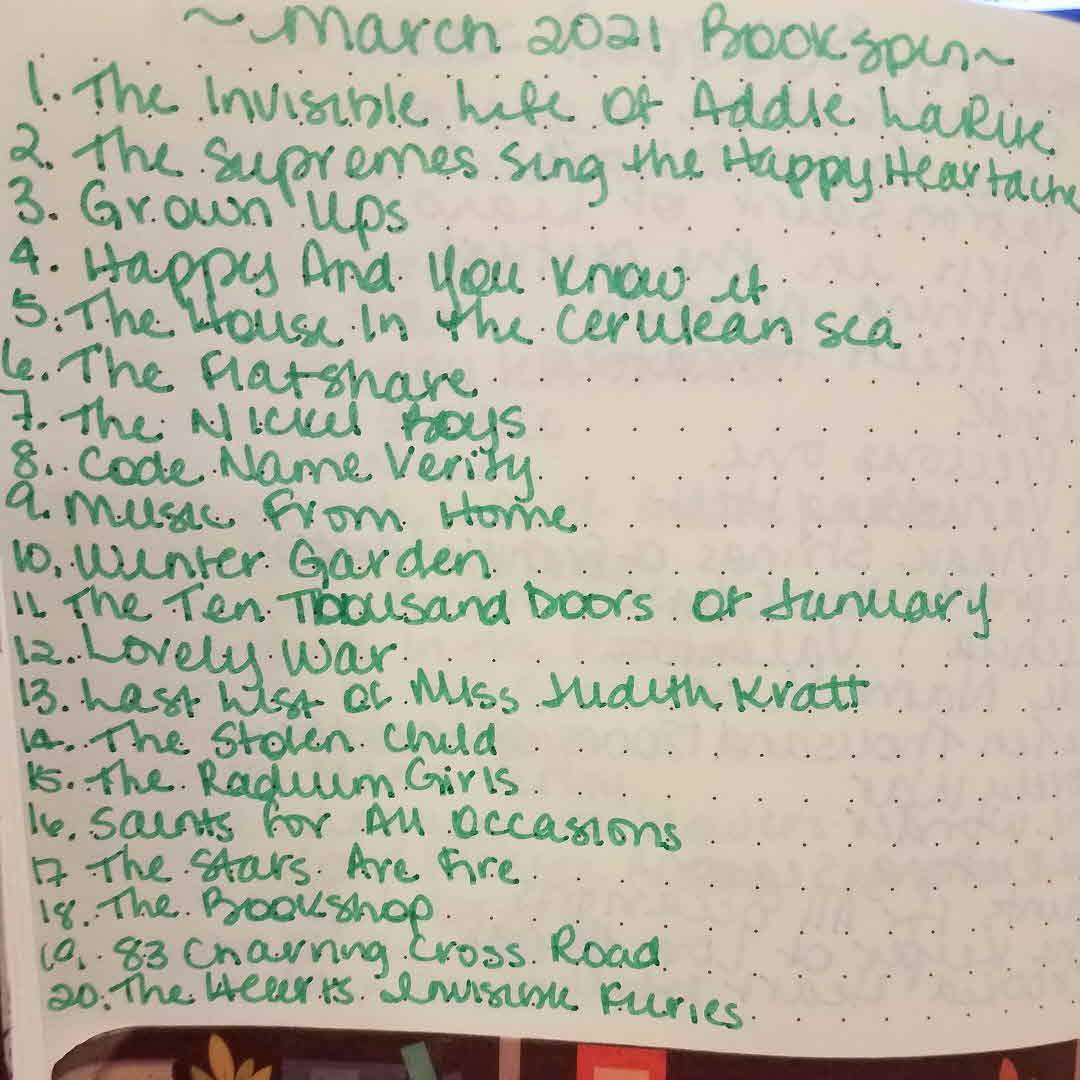 ~March 2021 Bookspin~
1. The Invisible Life Of Addie LaRue
2. The Supremes Sing the Happy Heartache
3. Grown Ups
4. Happy And You Know it
5. The House In the Cerulean Sea
6. The Flatshare
7. The Nickel Boys
8. Code Name Verity
9. Music From Home
10. Winter Garden
11 The Ten Thousand Doors of January
12. Lovely War
13. Last List of Miss Judith Kratt
14. The Stolen Child
15. The Radium Girls
16. Saints for All Occasions
17 The Stars Are Fire
18. The Bookshop
19. 83 Charing Cross Road
20. The Hearts Invisible Furies